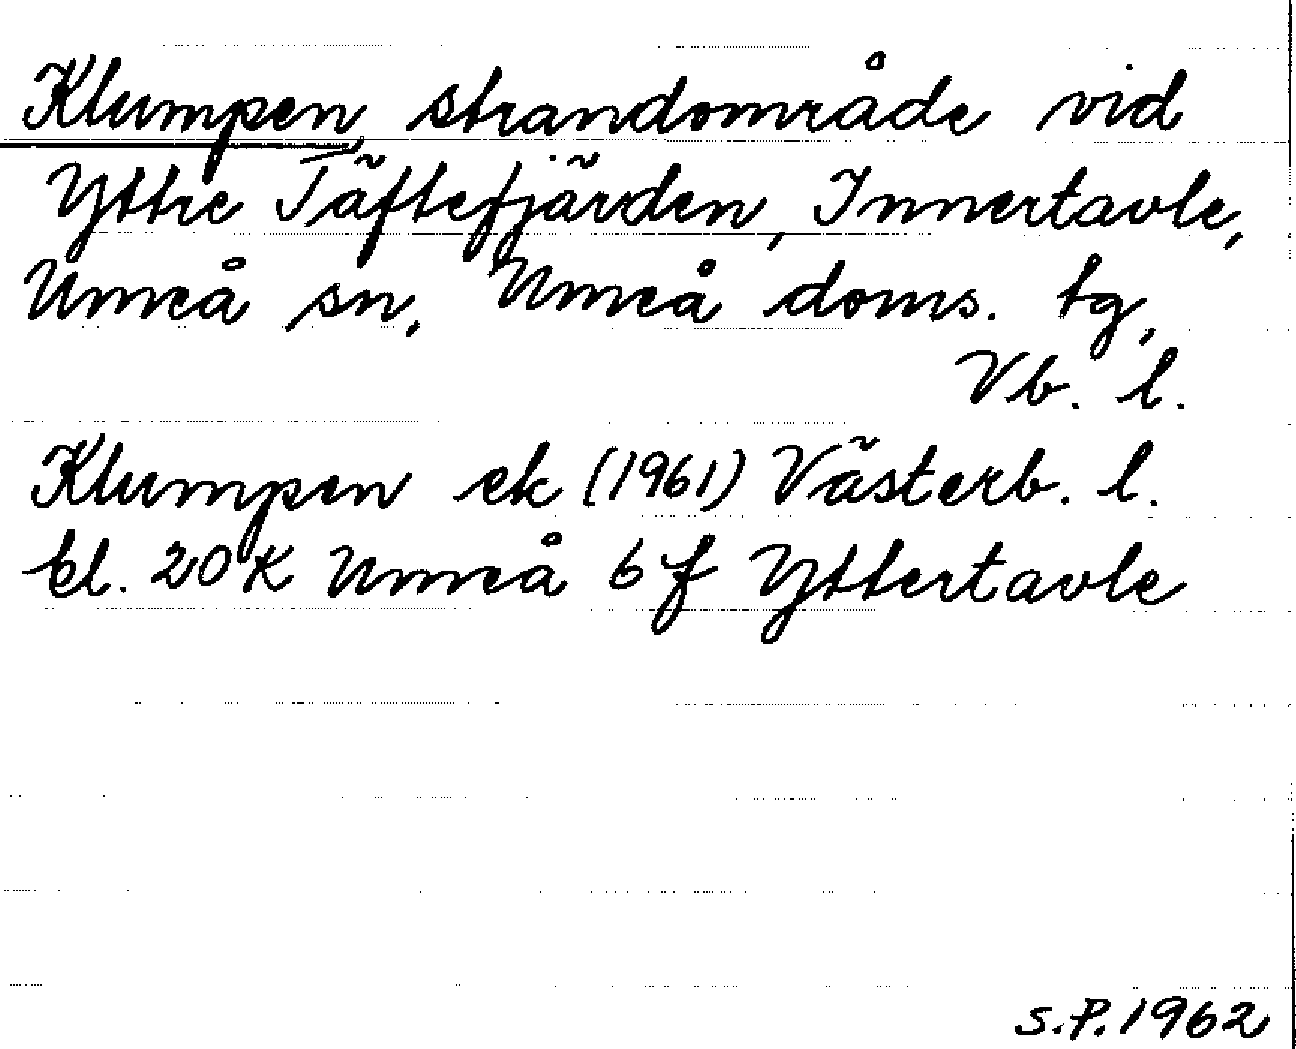 Klumpen, strandområde vid
Yttre Täftefjärden, Innertavle,
Umeå sn, Umeå doms. tg,
Vb. l.
Klumpen ek (1961) Västerb. l.
bl. 20 K Umeå 6 f Yttertavle
S.P. 1962